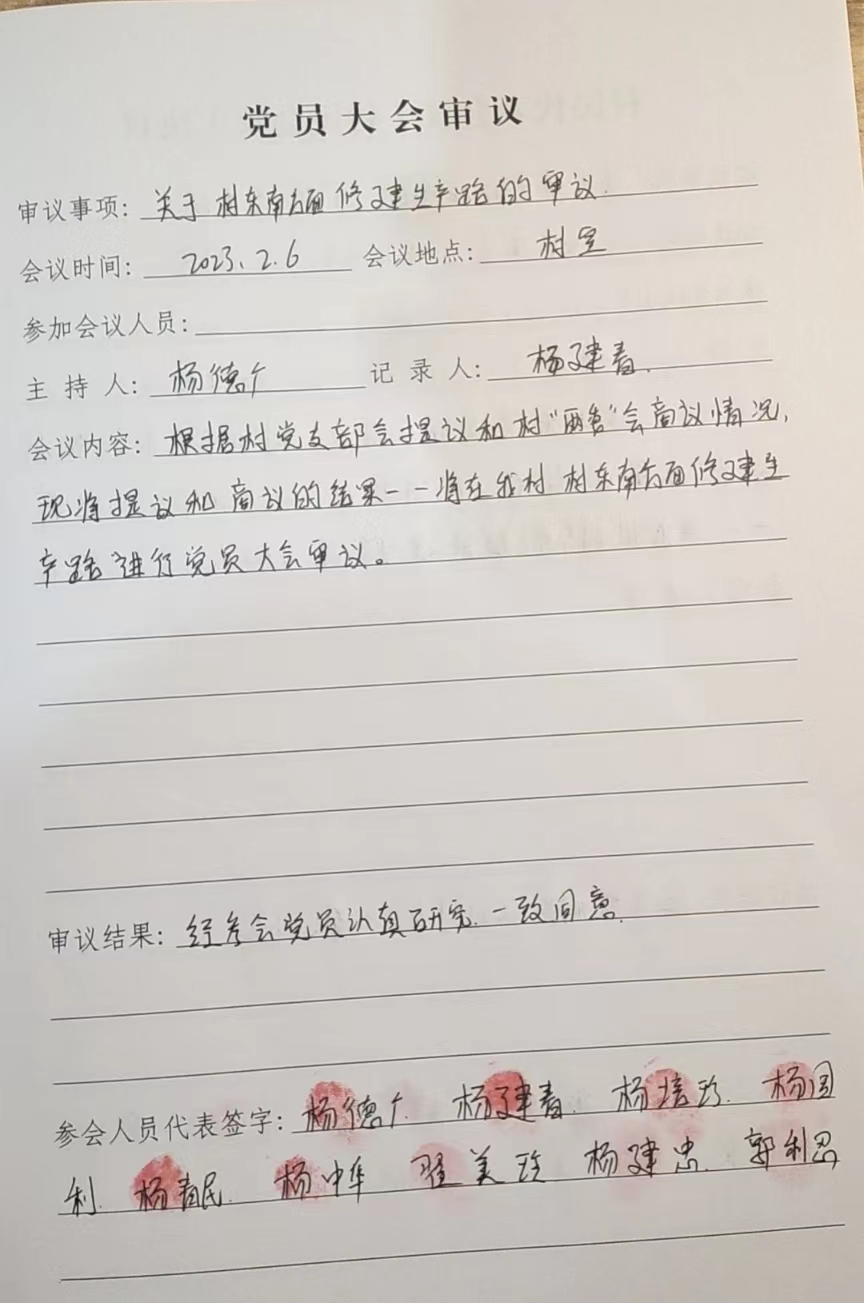 党员大会审议
审议事项：关于村东南方面修建生产路的审议.
会议时间：2023.2.6 会议地点：村里
参加会议人员：
主持人：杨德广 记录人：杨建春.
会议内容：根据村党支部会提议和村“两委”会商议情况，
现将提议和商议的结果——将在我村村东南方面修建生
产路进行党员大会审议。
审议结果：经参会党员认真研究.一致同意.
参会人员代表签字：杨德广 杨建春. 杨培珍. 杨国
利. 杨春民. 杨中华 翟美珍 杨建忠. 郭利